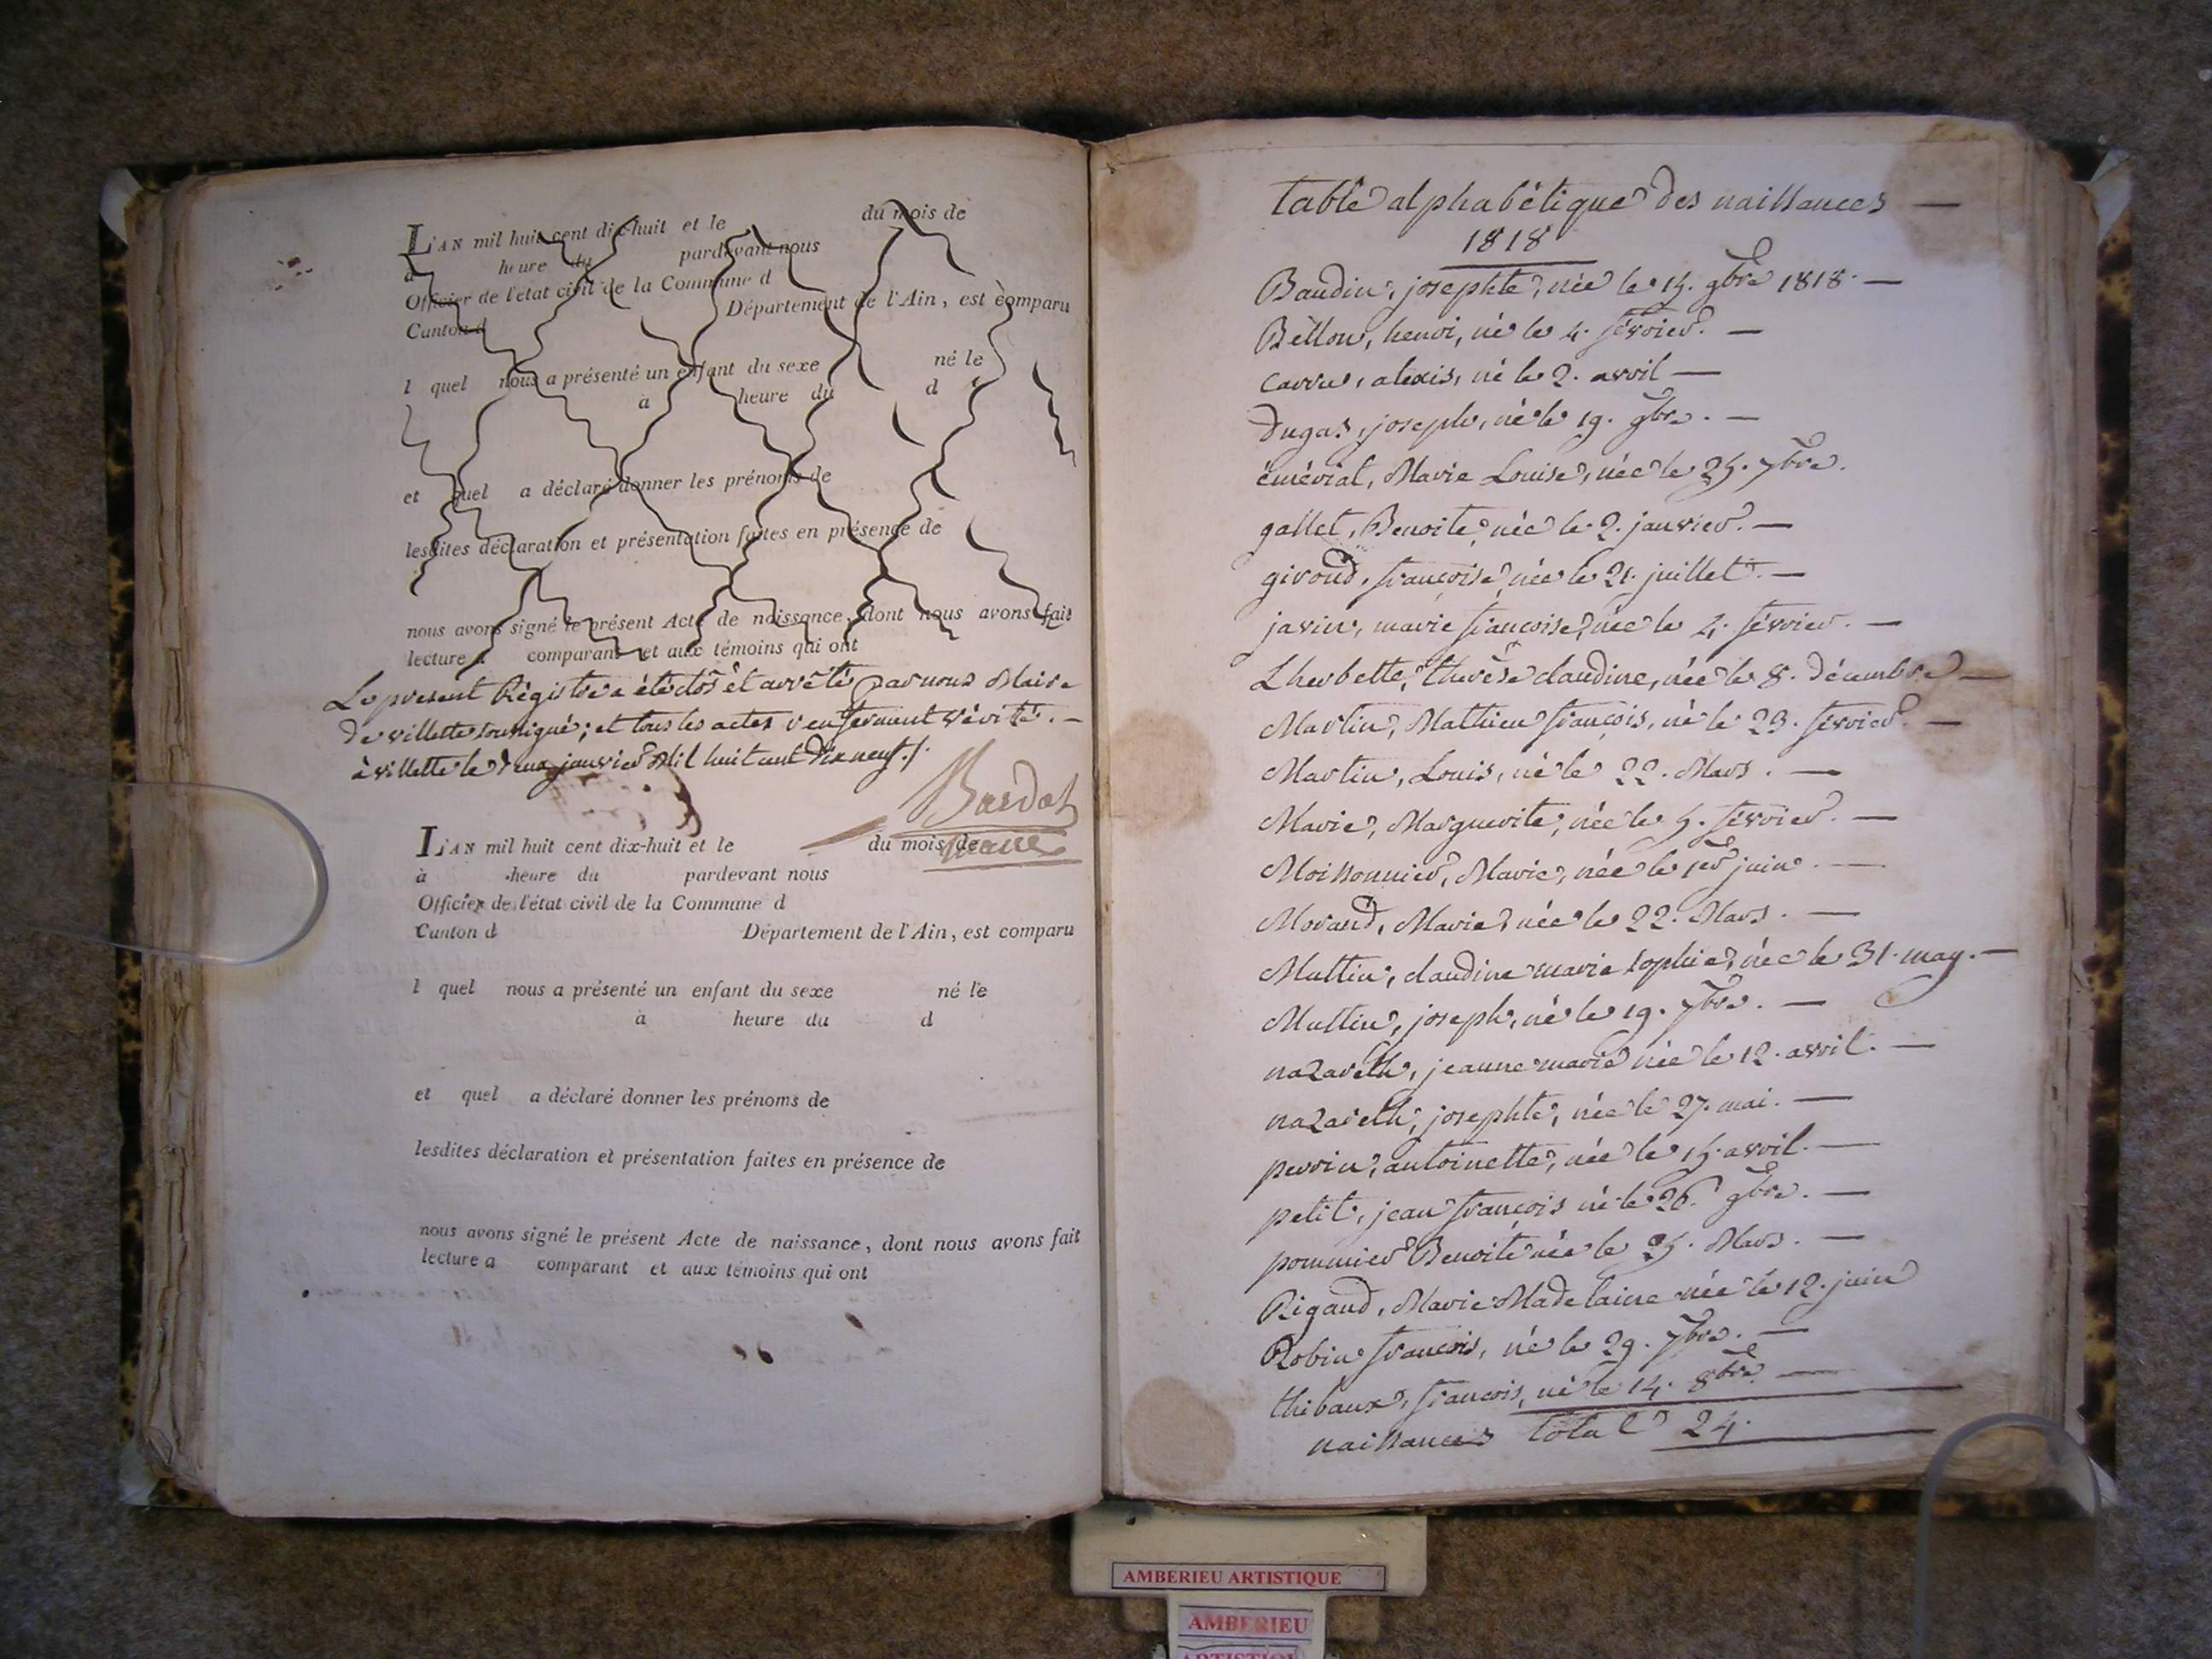 L'AN mil huit cent dix-huit et le du mois de
à heure du pardevant nous
Officier de l'état civil de la Commune d
Canton d Département de l'Ain, est comparu
l quel nous a présenté un enfant du sexe né le
à heure du d
et quel a déclaré donner les prénoms de
lesdites déclaration et présentation faites en présence de
nous avons signé le présent Acte de naissance, dont nous avons fait
lecture a comparant et aux témoins qui ont
Le present Régistre a été clos et arrêté par nous Maire
de villette soussigné; et tous les actes renferment vérité. —
à villette le deux janvier Mil huit cent dix neuf./.
Bardet
maire
L'AN mil huit cent dix-huit et le du mois de
à heure du pardevant nous
Officier de l'état civil de la Commune d
Canton d Département de l'Ain, est comparu
l quel nous a présenté un enfant du sexe né le
à heure du d
et quel a déclaré donner les prénoms de
lesdites déclaration et présentation faites en présence de
nous avons signé le présent Acte de naissance, dont nous avons fait
lecture a comparant et aux témoins qui ont
table alphabétique des naissances —
1818
Baudin, josephte, née le 15. 9bre 1818. —
Bellon, henri, né le 4. février. —
carru, alexis, né le 2. avril —
dugas, joseph, né le 19. 9bre. —
émériat, Marie Louise, née le 25. 7bre.
gallet, Benoite, née le 2. janvier. —
giroud, françoise, née le 21. juillet. —
javin, marie françoise, née le 4. février. —
Lherbette, thérèse claudine, née le 8. décembre —
Martin, Mathieu françois, né le 23. février. —
Martin, Louis, né le 22. Mars. —
Marie, Marguerite, née le 5. février. —
Moissonnier, Marie, née le 1er juin. —
Morand, Marie, née le 22. Mars. —
Muttin, claudine marie sophie, née le 31. may. —
Muttin, joseph, né le 19. 7bre. —
nazareth, jeanne marie née le 12. avril. —
nazareth, josephte, née le 27. mai. —
perrin, antoinette, née le 15. avril. —
petit, jean françois né le 26. 9bre. —
pommier Benoite née le 25. Mars. —
Rigaud, Marie Madelaine née le 12. juin
Robin françois, né le 29. 7bre. —
thibaux, françois, né le 14. 8bre —
naissances total 24.
AMBERIEU ARTISTIQUE
AMBERIEU
ARTISTIQUE